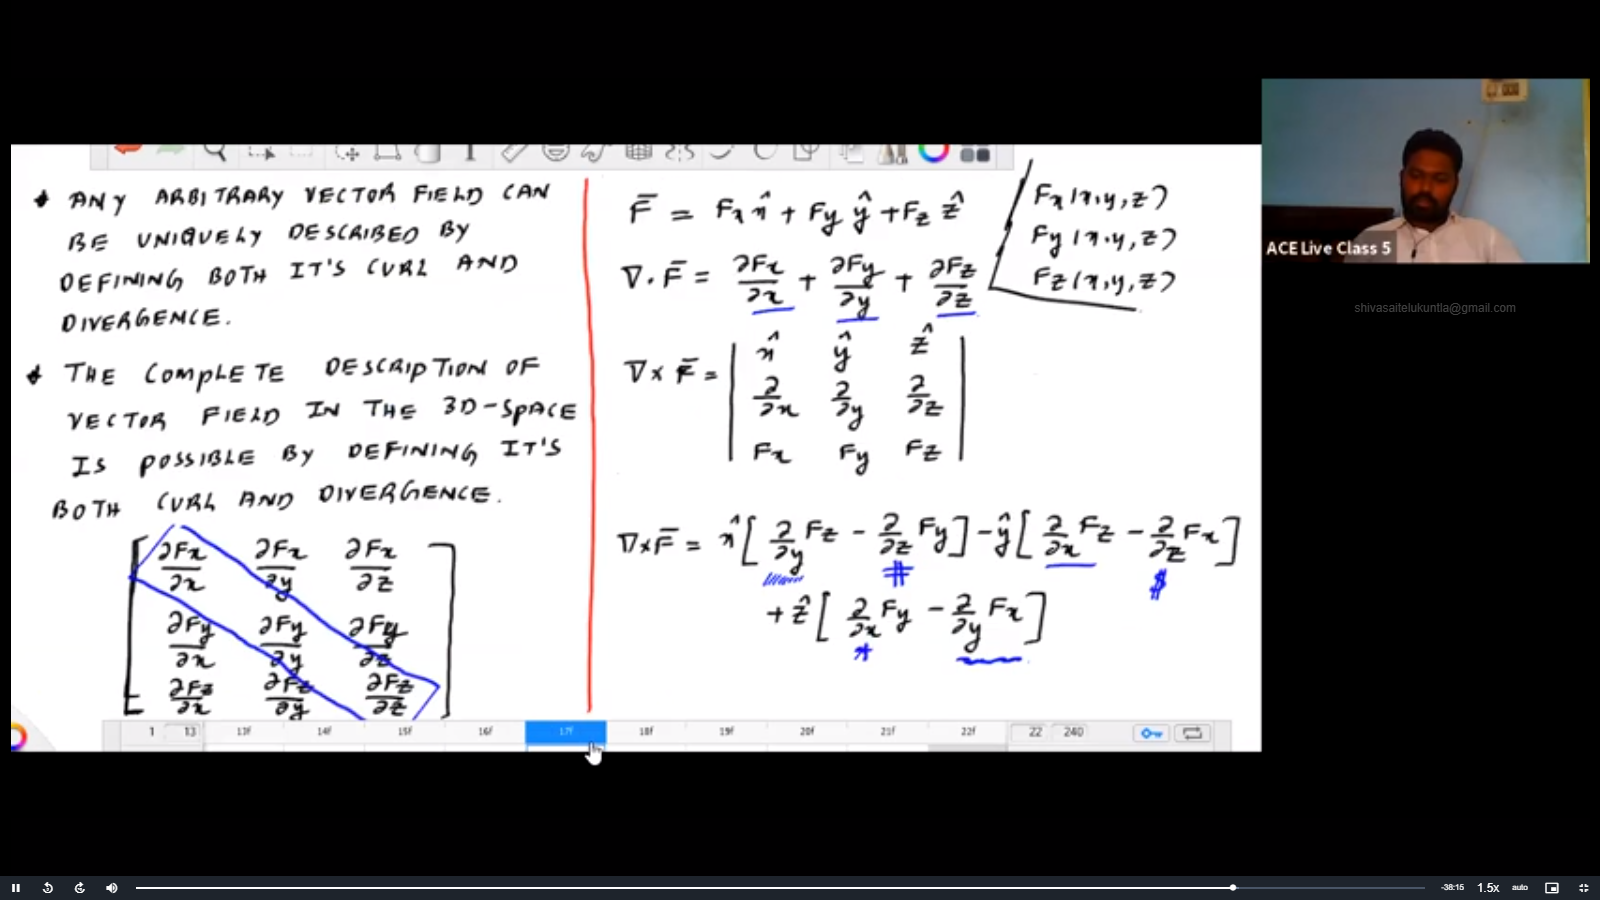 * ANY ARBITRARY VECTOR FIELD CAN
BE UNIQUELY DESCRIBED BY
DEFINING BOTH IT'S CURL AND
DIVERGENCE.
* THE COMPLETE DESCRIPTION OF
VECTOR FIELD IN THE 3D-SPACE
IS POSSIBLE BY DEFINING IT'S
BOTH CURL AND DIVERGENCE.
[ ∂Fx/∂x ∂Fx/∂y ∂Fx/∂z
∂Fy/∂x ∂Fy/∂y ∂Fy/∂z
∂Fz/∂x ∂Fz/∂y ∂Fz/∂z ]
F̄ = Fx x̂ + Fy ŷ + Fz ẑ
∇.F̄ = ∂Fx/∂x + ∂Fy/∂y + ∂Fz/∂z
∇×F̄ = | x̂ ŷ ẑ
∂/∂x ∂/∂y ∂/∂z
Fx Fy Fz |
∇×F̄ = x̂[∂/∂y Fz - ∂/∂z Fy] - ŷ[∂/∂x Fz - ∂/∂z Fx]
# $
+ ẑ[∂/∂x Fy - ∂/∂y Fx]
*
Fx(x,y,z)
Fy(x,y,z)
Fz(x,y,z)
ACE Live Class 5
shivasaitelukuntla@gmail.com
1 13 13f 14f 15f 16f 17f 18f 19f 20f 21f 22f 22 240
-38:15 1.5x auto